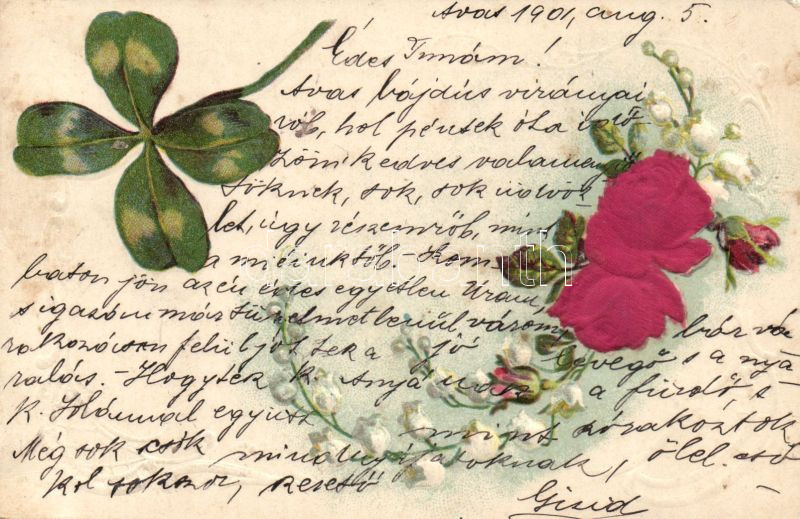 Avas 1901, aug. 5.
Édes Irmám!
Avas bájdús virányai
ról, hol péntek óta időzöm
kedves valameny
tőknek, sok, sok üdvöz
let, úgy részemről, mint
a mieinktől. - Szom
baton jön az én édes egyetlen Uram,
s igazán már türelmetlenül várom,
bár várakozáson felül jót tesz a jó levegő s a nya
ralás. - Hogytek K. Anyá a fürdő, s
K. Zolánnal együtt mint szórakoztok
Még sok csók mindnyájatoknak, ölel
sokszor, szerető
Gizid